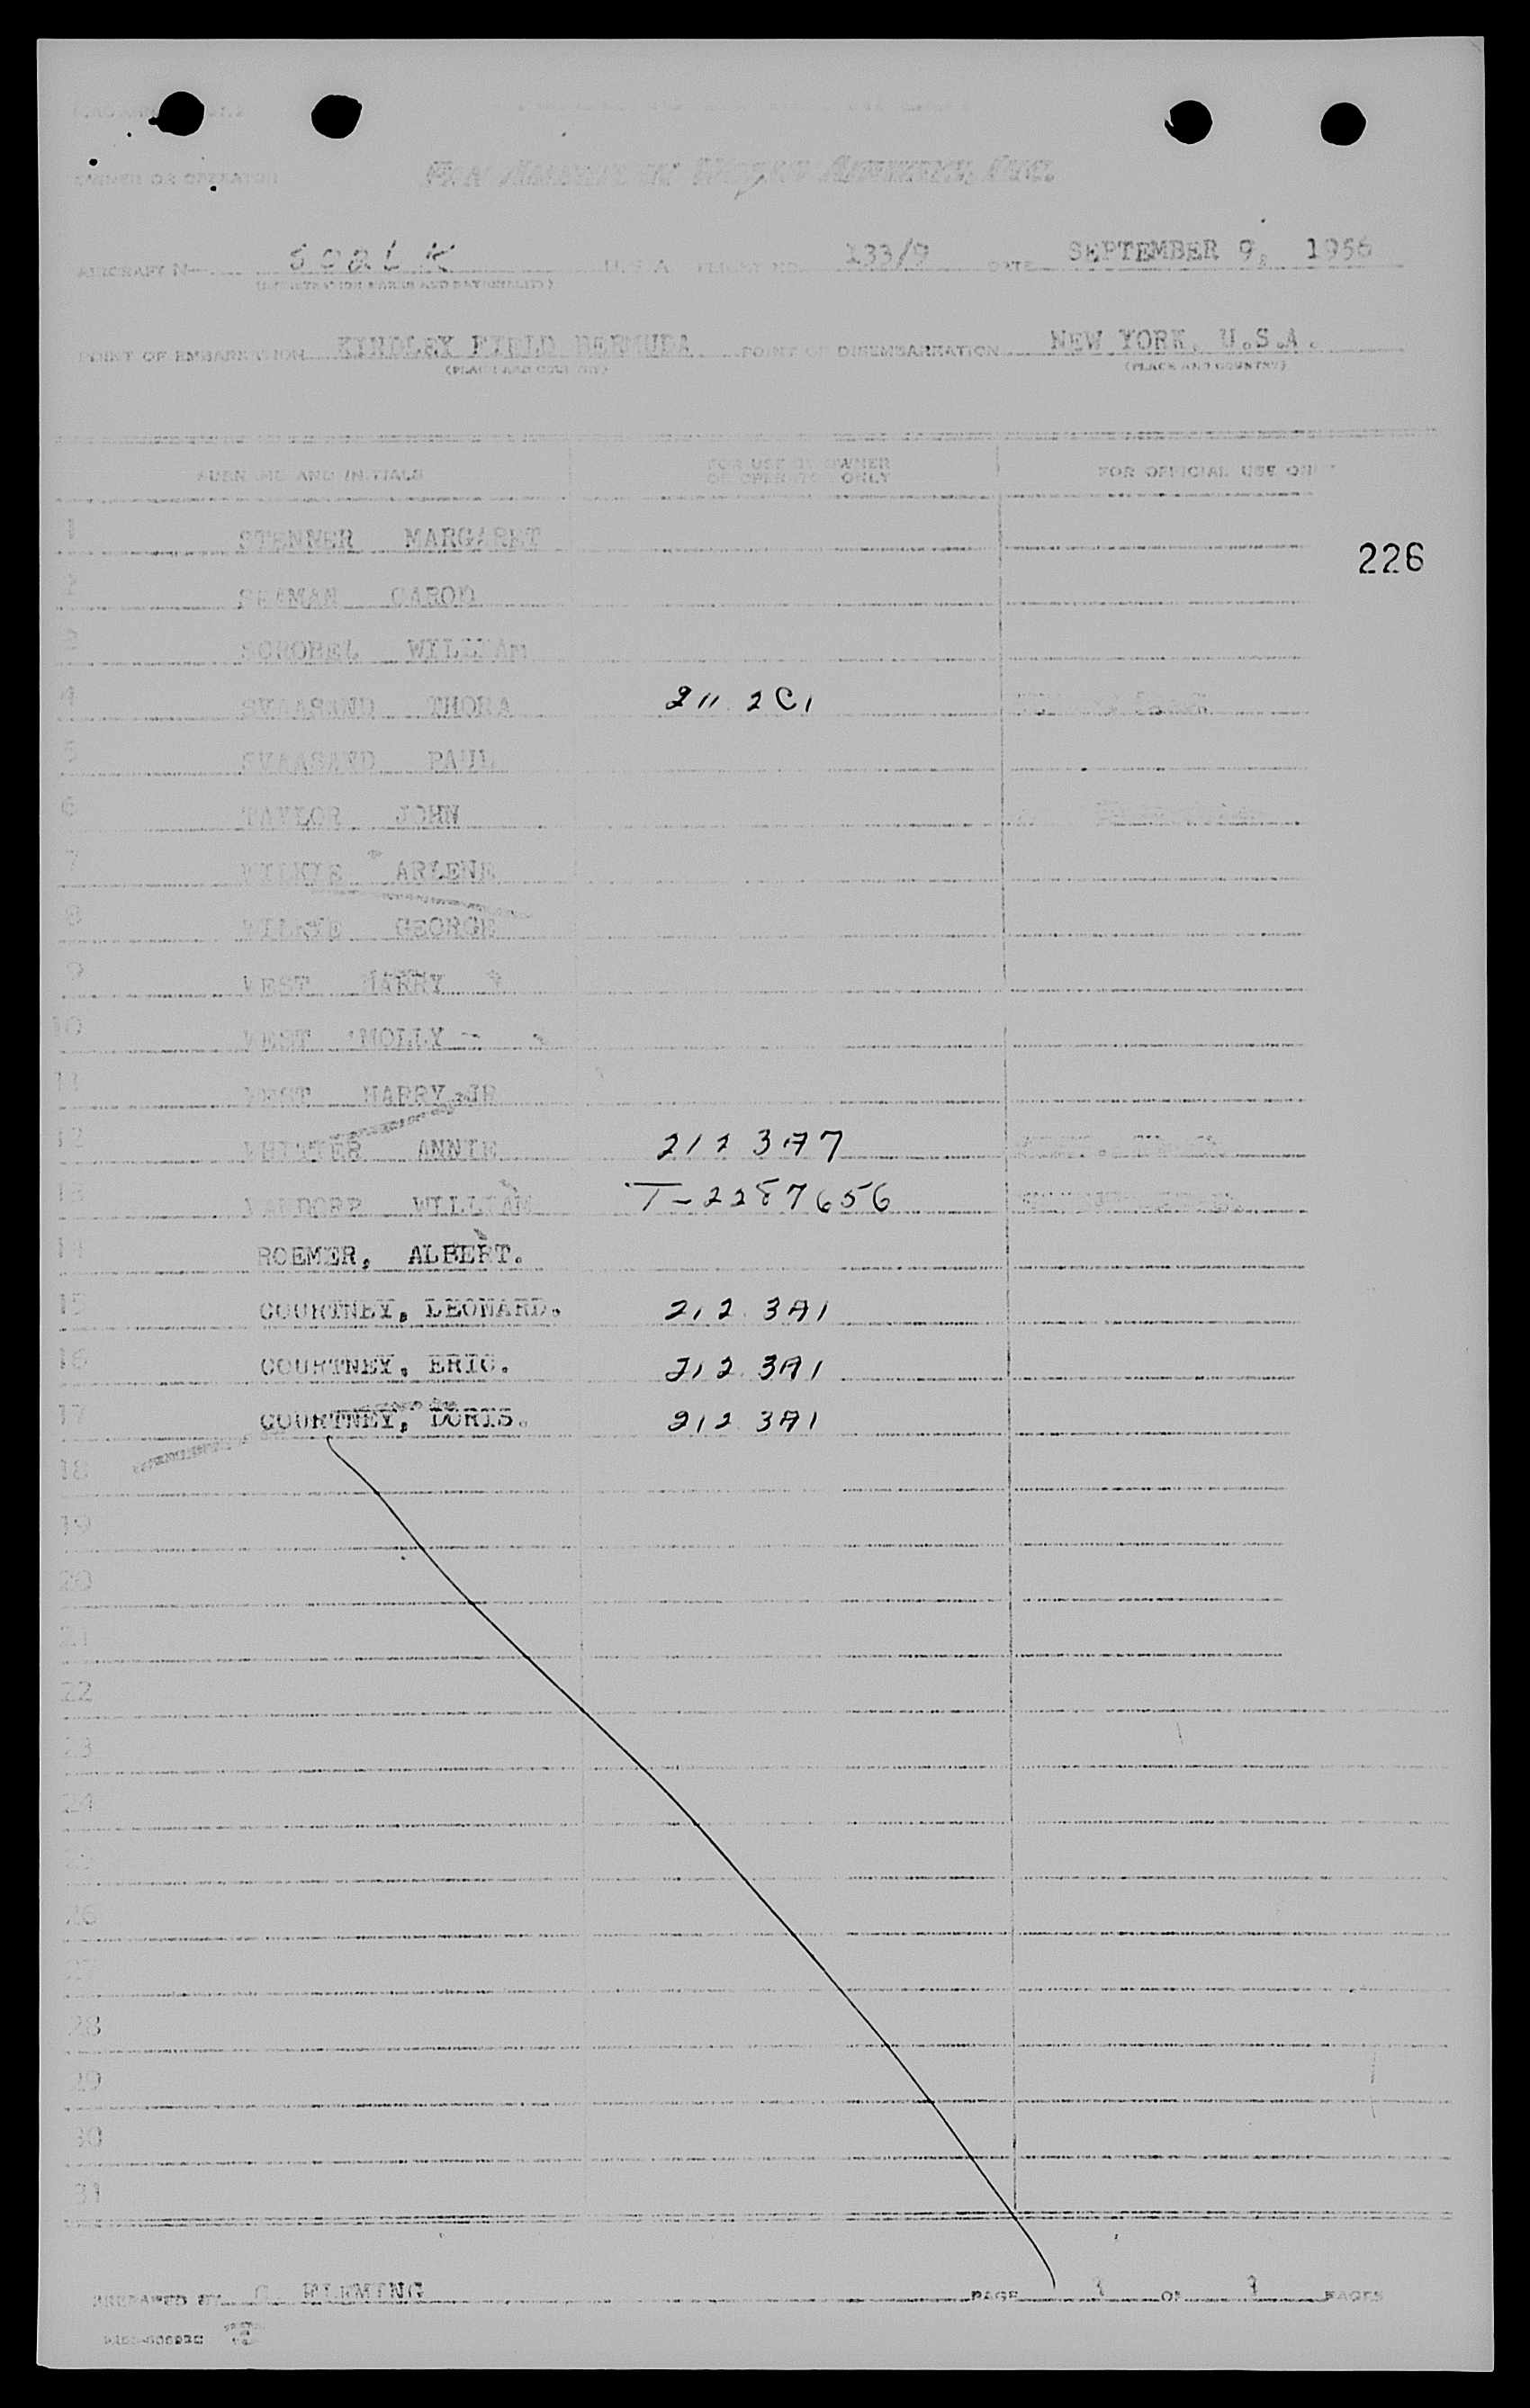 OWNER OR OPERATOR Pan American World Airways, Inc.
AIRCRAFT N U.S.A FLIGHT NO. 133/9 DATE SEPTEMBER 9, 1956
(REGISTRATION MARKS AND NATIONALITY)
POINT OF EMBARKATION KINDLEY FIELD BERMUDA POINT OF DISEMBARKATION NEW YORK, U.S.A.
(PLACE AND COUNTRY) (PLACE AND COUNTRY)
SURNAME AND INITIALS FOR USE OF OWNER OR OPERATOR ONLY FOR OFFICIAL USE ONLY
1 STENNER MARGARET
226
2 SEAMAN CARON
3 SCROBEL WILLIAM
4 SVAASAND THORA 211 2C1
5 SVAASAND PAUL
6 TAYLOR JOHN
7 WILKIE ARLENE
8 WILKIE GEORGE
9 WEST HARRY
10 WEST MOLLY
11 WEST HARRY JR
12 WHITTER ANNIE 212 3A7
13 WALDORF WILLIAM T-2287656
14 ROEMER, ALBERT.
15 COURTNEY, LEONARD. 212 3A1
16 COURTNEY, ERIC. 212 3A1
17 COURTNEY, DORIS. 212 3A1
18
19
20
21
22
23
24
25
26
27
28
29
30
31
PREPARED BY FLEMING PAGE OF PAGES